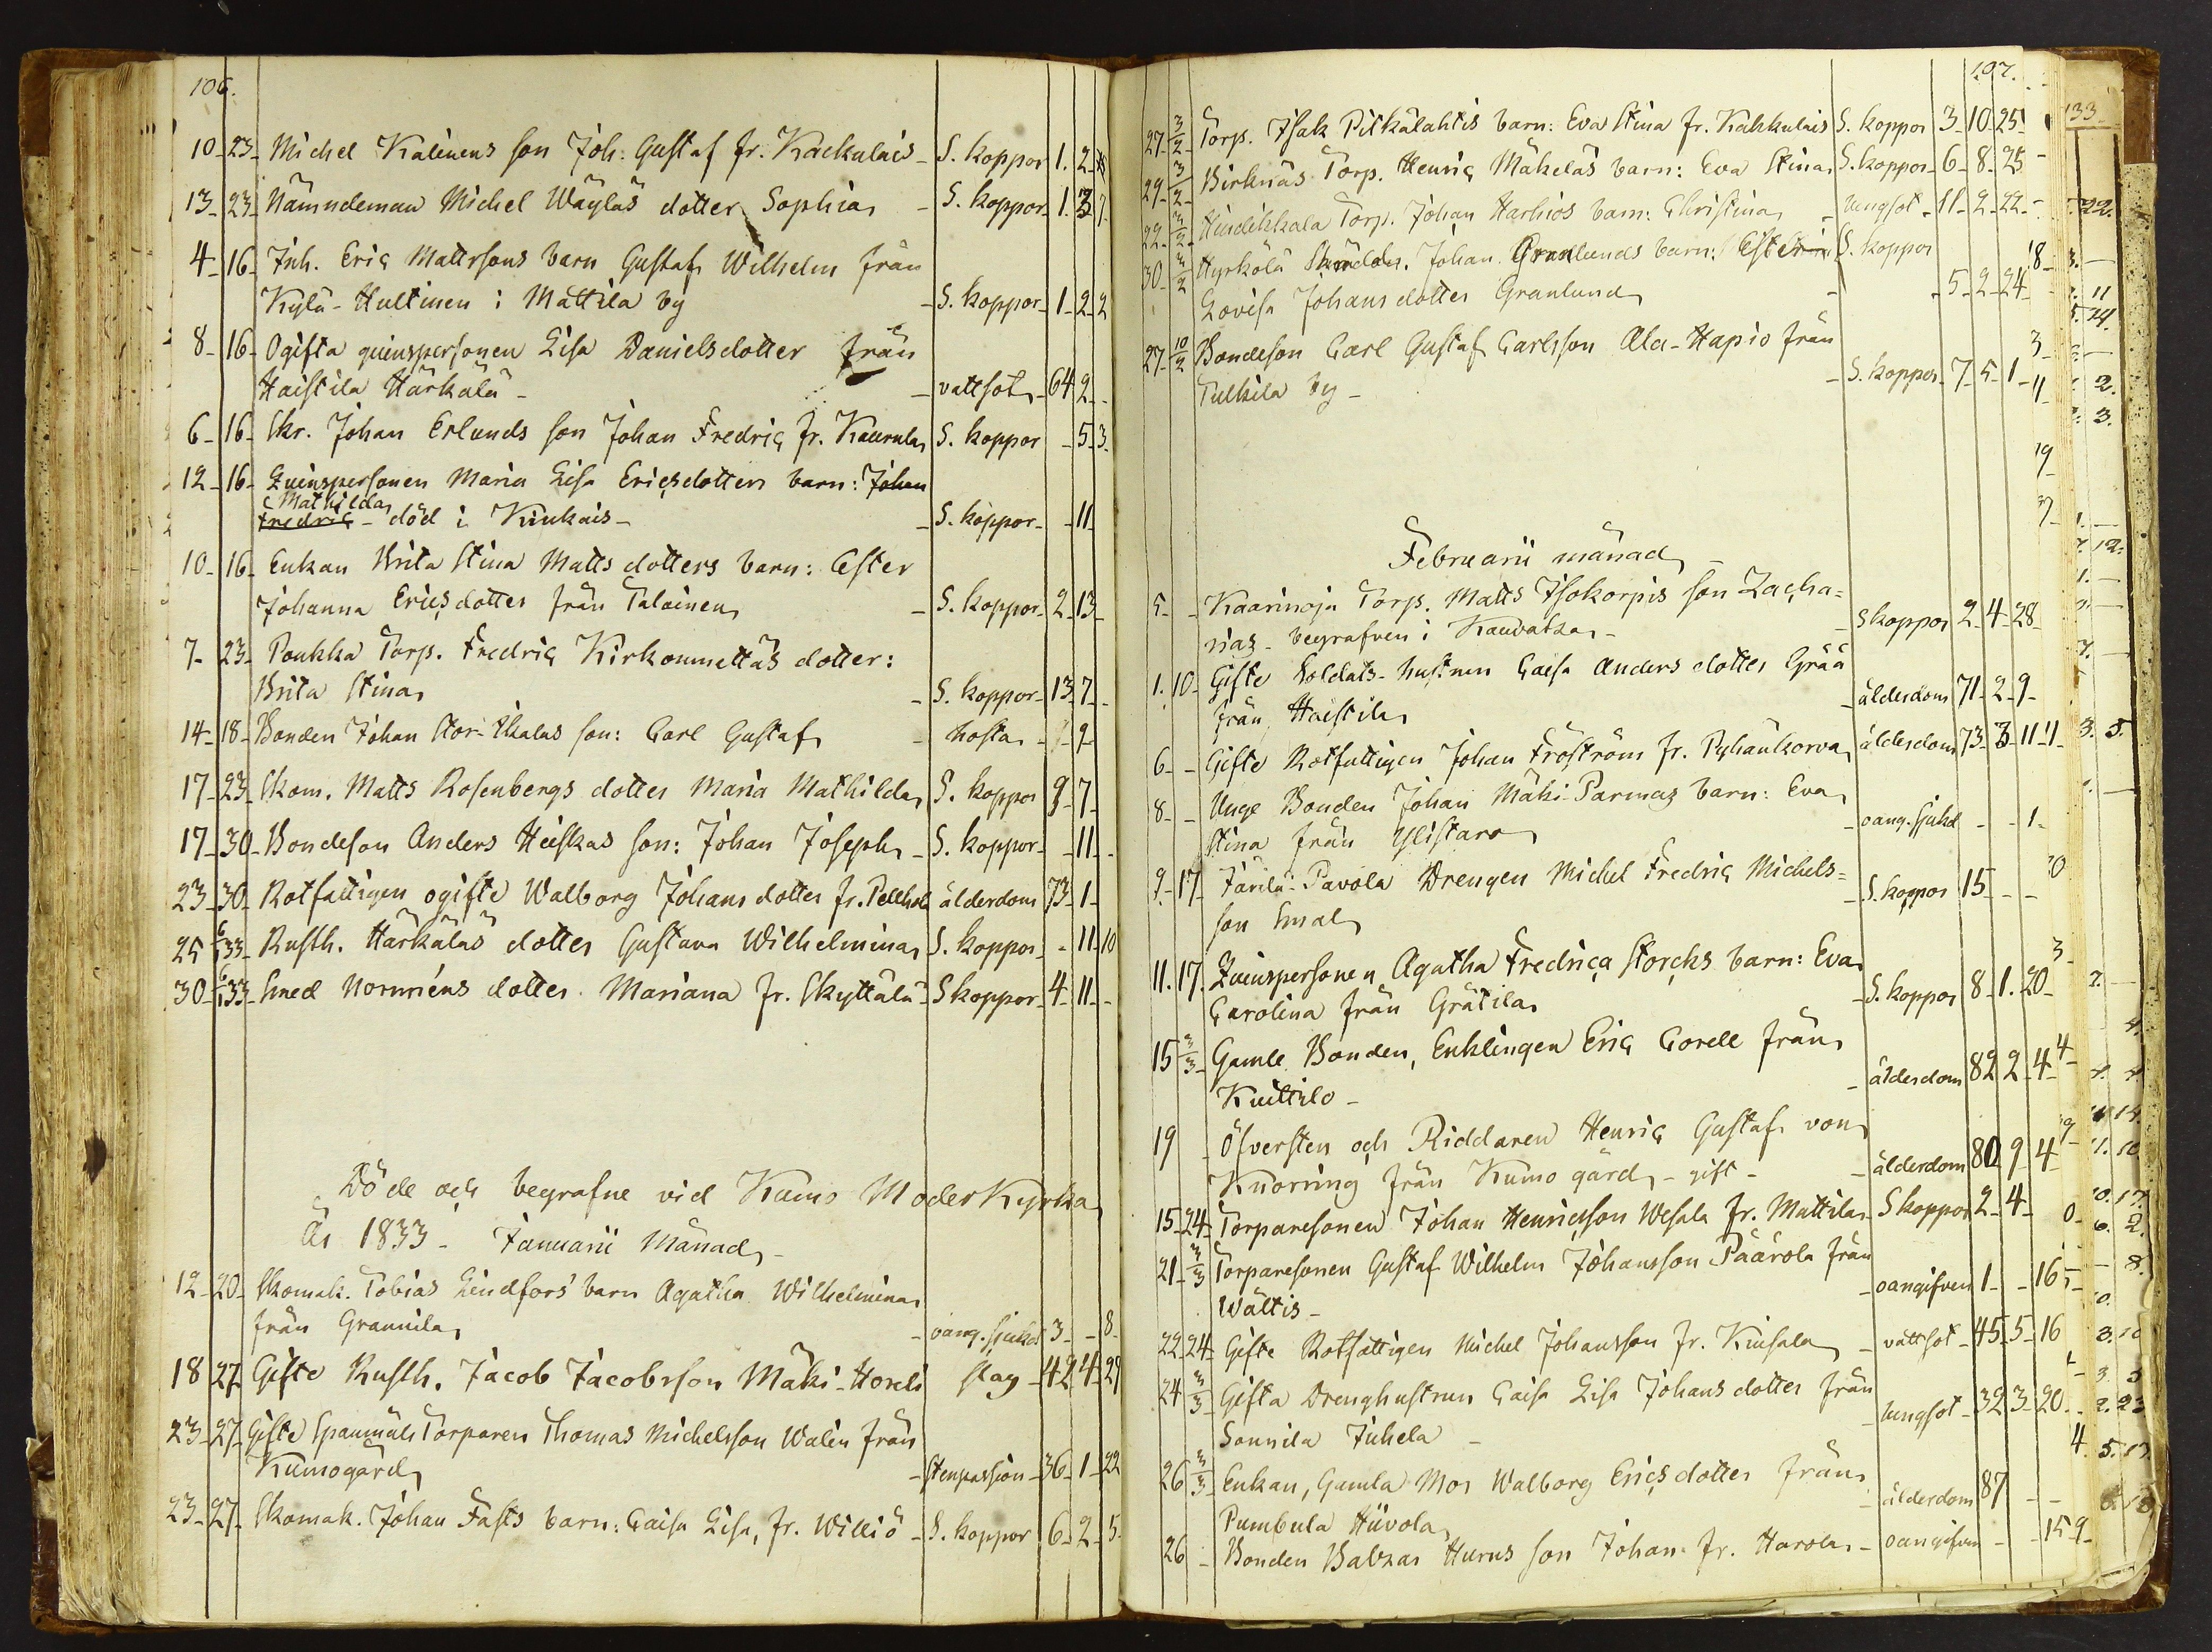 106.
10 - 23 - Michel Kalinens son Joh: Gustaf fr. Kackulais - S. koppor 1. 2.
13 - 23 - Nämndeman Michel Wäyläs dotter Sophia - S. koppor - 1. 3 7.
4 - 16 - Inh. Eric Mattssons barn Gustaf Wilhelm från
Kylä-Hultinen i Mattila by - S. koppor - 1 - 2 - 2
8 - 16 - Ogifta quinspersonen Lisa Danielsdotter från
Haistila Härkälä - - vattsot - 64 2 -
6 - 16 - Skr. Johan Erlunds son Johan Fredric fr. Kaurula S. koppor - 5 - 3.
12 - 16 - Quinspersonen Maria Lisa Ericsdotters barn: Johan
Mathilda
Fredric - död i Kiukais - - S. koppor - - 11 -
10 - 16 - Enkan Brita Stina Matts dotters barn: Ester
Johanna Ericsdotter från Talainen - S. koppor - 2 - 13 -
7 - 23 - Poukka Torp. Fredric Kirkommettäs dotter:
Brita Stina - S. koppor - 13 - 7 -
14 - 18 - Bonden Johan Stor-Skalas son: Carl Gustaf - hosta - - 9 -
17 - 23 - Skom. Matts Rosenbergs dotter Maria Mathilda S. koppor 9 - 7 -
17 - 30 - Bondeson Anders Heiskas son: Johan Joseph - S. koppor - - 11 -
23 - 30 - Rotfattigen ogifte Walborg Johans dotter fr. Pellhola ålderdom 73 - 1 -
25 6/1 33 - Rusth. Härkäläs dotter Gustava Wilhelmina S. koppor - - 11 - 10
30 - 6/1 33 - Smed Norrnéns dotter Mariana fr. Skyttälä - S koppor - 4 - 11 - -
Döde och begrafne vid Kumo Moder Kyrka
År 1833 - Januarii Månad -
12 - 20 - Skomak. Tobias Lindfors' barn Agatha Wilhelmina
från Grannila - oang. sjukd 3 - - 8 -
18 27 - Gifte Rusth. Jacob Jacobsson Mäki-Horeli slag - 42 4 - 29
23 - 27 - Gifte Spanmåls Torparen Thomas Michelsson Walin från
Kumogård - Stenpassion - 36 - 1 - 22
23 - 27 - Skomak. Johan Fasts barn: Caisa Lisa, fr. Williö - S. koppor 6 - 2 - 5 -
107.
27 - 3/2 - Torp. Isak Pitkälahtis barn: Eva Stina fr. Kakkulais S. koppor 3 - 10 - 25
29 - 3/2 - Birknäs Torp. Henric Mäkeläs barn: Eva Stina S. koppor - 6 - 8 - 25 -
22 - 3/2 - Hindikkala Torp. Johan Harhios barn: Christina - lungsot - 11 - 2 - 22 -
30 3/2 Hyrkölä Skrädd. Johan Granlunds barn: S. koppor
Lovisa Johans dotter Granlund - - 5 - 2 - 24
27 - 10/2 Bondeson Carl Gustaf Carlsson Ala-Hapio från
Tulkila by - - S. koppor - 7 - 5 - 1 -
Februarii månad
5 - - Kaarinoja Torp. Matts Isokorpis son Zacha=
rias - begrafven i Kauvatsa - - S koppor 2 - 4 - 28
1. 10 - Gifte Soldats-hustrun Caisa Anders dotter Grää
från Haistila - ålderdom 71 - 2 - 9 -
6 - - Gifte Rotfattigen Johan Fröström fr. Pyhänkorva ålderdom 73 - 3 - 11
8 - - Unge Bonden Johan Mäki-Parmaz barn: Eva
Stina från Ylistaro - oang. sjukd - - 1 -
9 - 17 Järilä-Pavola Drengen Michel Fredric Michels=
son Smal - S. koppor 15 - -
11. 17. Quinspersonen Agatha Fredrica Storcks barn: Eva
Carolina från Grätila - S. koppor 8 - 1. 20 -
15 3/3 - Gamle Bonden, Enklingen Eric Corell från
Kuittilo - - ålderdom 82 2 4
19 - Öfversten och Riddaren Henric Gustaf von
Knorring från Kumo gård - gift - - ålderdom 80 9 - 4
15 - 24 - Torparesonen Johan Henricsson Wesala fr. Mattila S koppor 2 - 4 -
21 - 3/3 Torparesonen Gustaf Wilhelm Johansson Päärola från
Wältis - - oangifven 1 - - 16
22 - 24 - Gifte Rotfattigen Michel Johansson fr. Kiusala - vattsot - 45 - 5 - 16
24 3/3 - Gifta Drenghustrun Caisa Lisa Johans dotter från
Sonnila Juhela - - lungsot - 32 3 - 20
26 3/3 - Enkan, Gamla Mor Walborg Ericsdotter från
Pumbula Hiivola - ålderdom 87 - -
26 - Bonden Balzar Hurus son Johan fr. Harola - oangifven - - 15